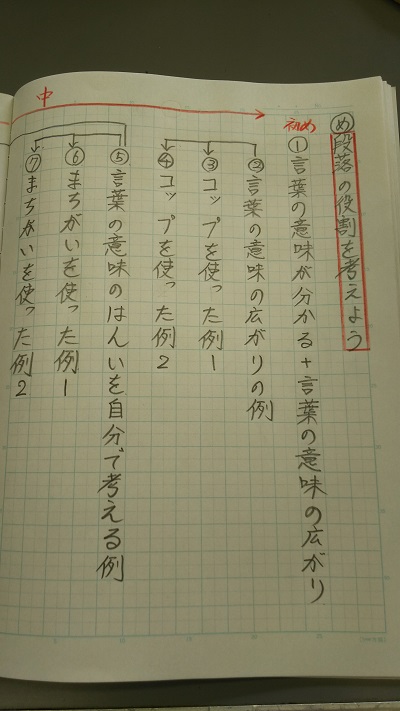 め 段落の役割を考えよう
初め
① 言葉の意味が分かる+言葉の意味の広がり
中
② 言葉の意味の広がりの例
③ コップを使った例1
④ コップを使った例2
⑤ 言葉の意味のはんいを自分で考える例
⑥ まちがいを使った例1
⑦ まちがいを使った例2